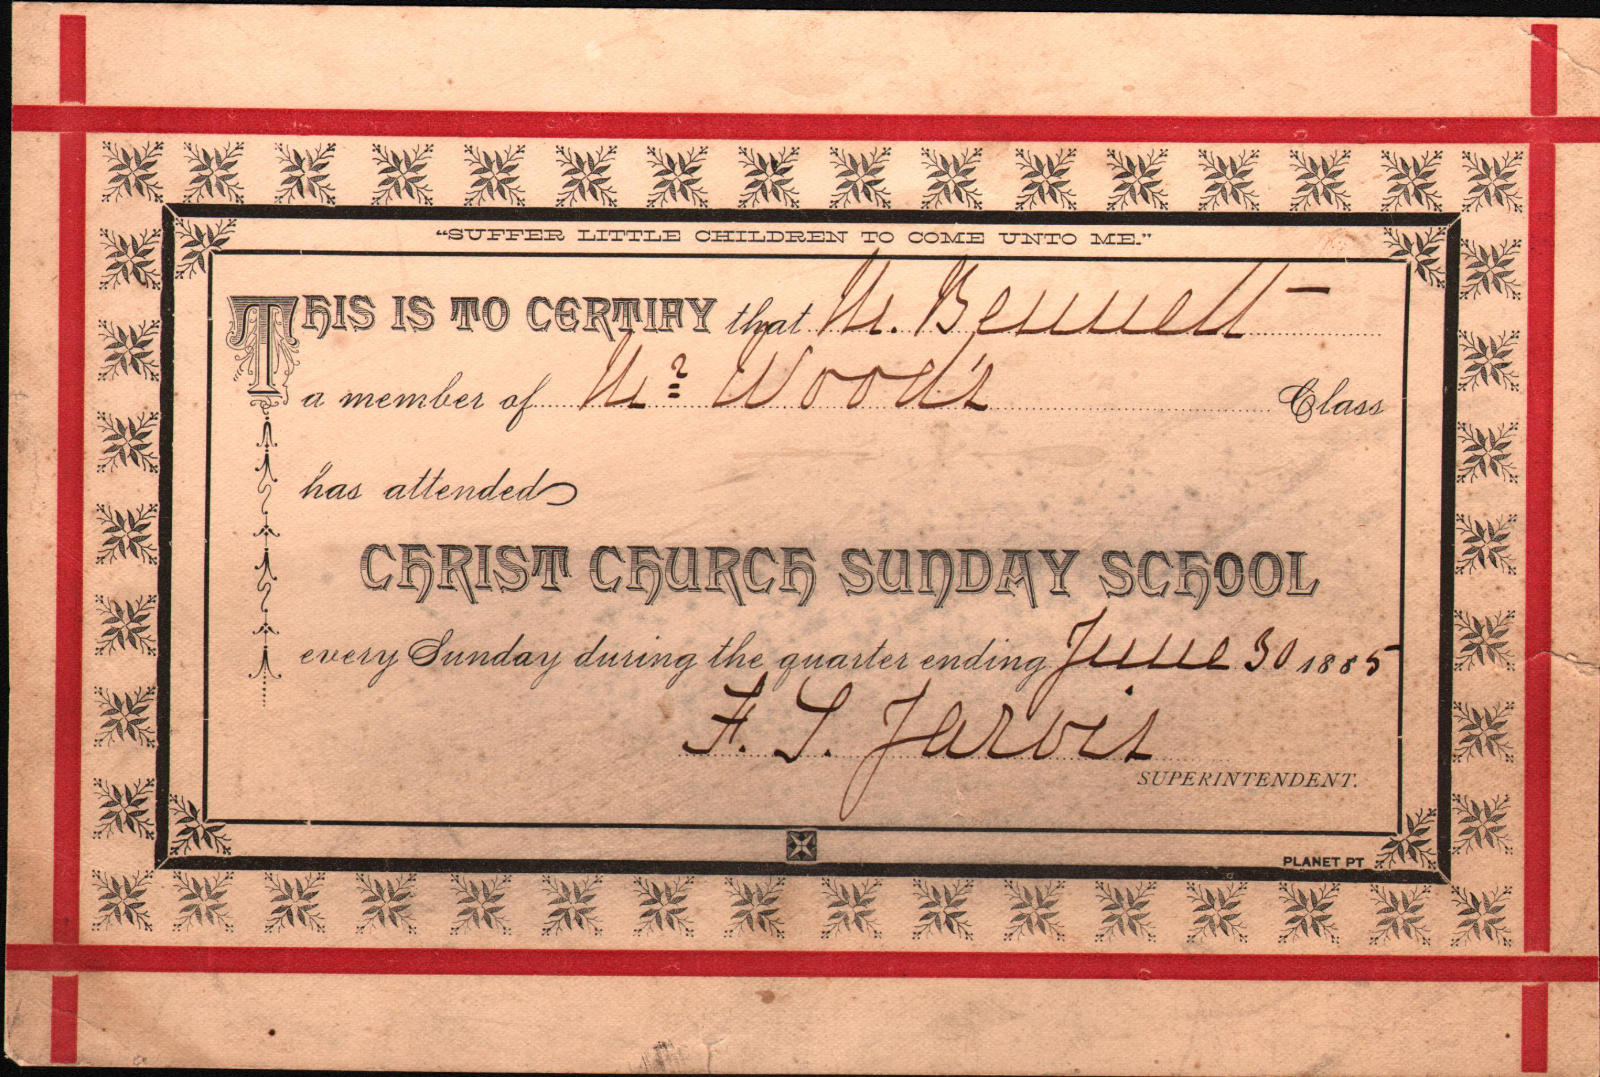 "SUFFER LITTLE CHILDREN TO COME UNTO ME."
THIS IS TO CERTIFY that M. Bennett
a member of Mr. Wood's Class
has attended
CHRIST CHURCH SUNDAY SCHOOL
every Sunday during the quarter ending June 30 1885
F. S. Jarvis
SUPERINTENDENT.
PLANET PT